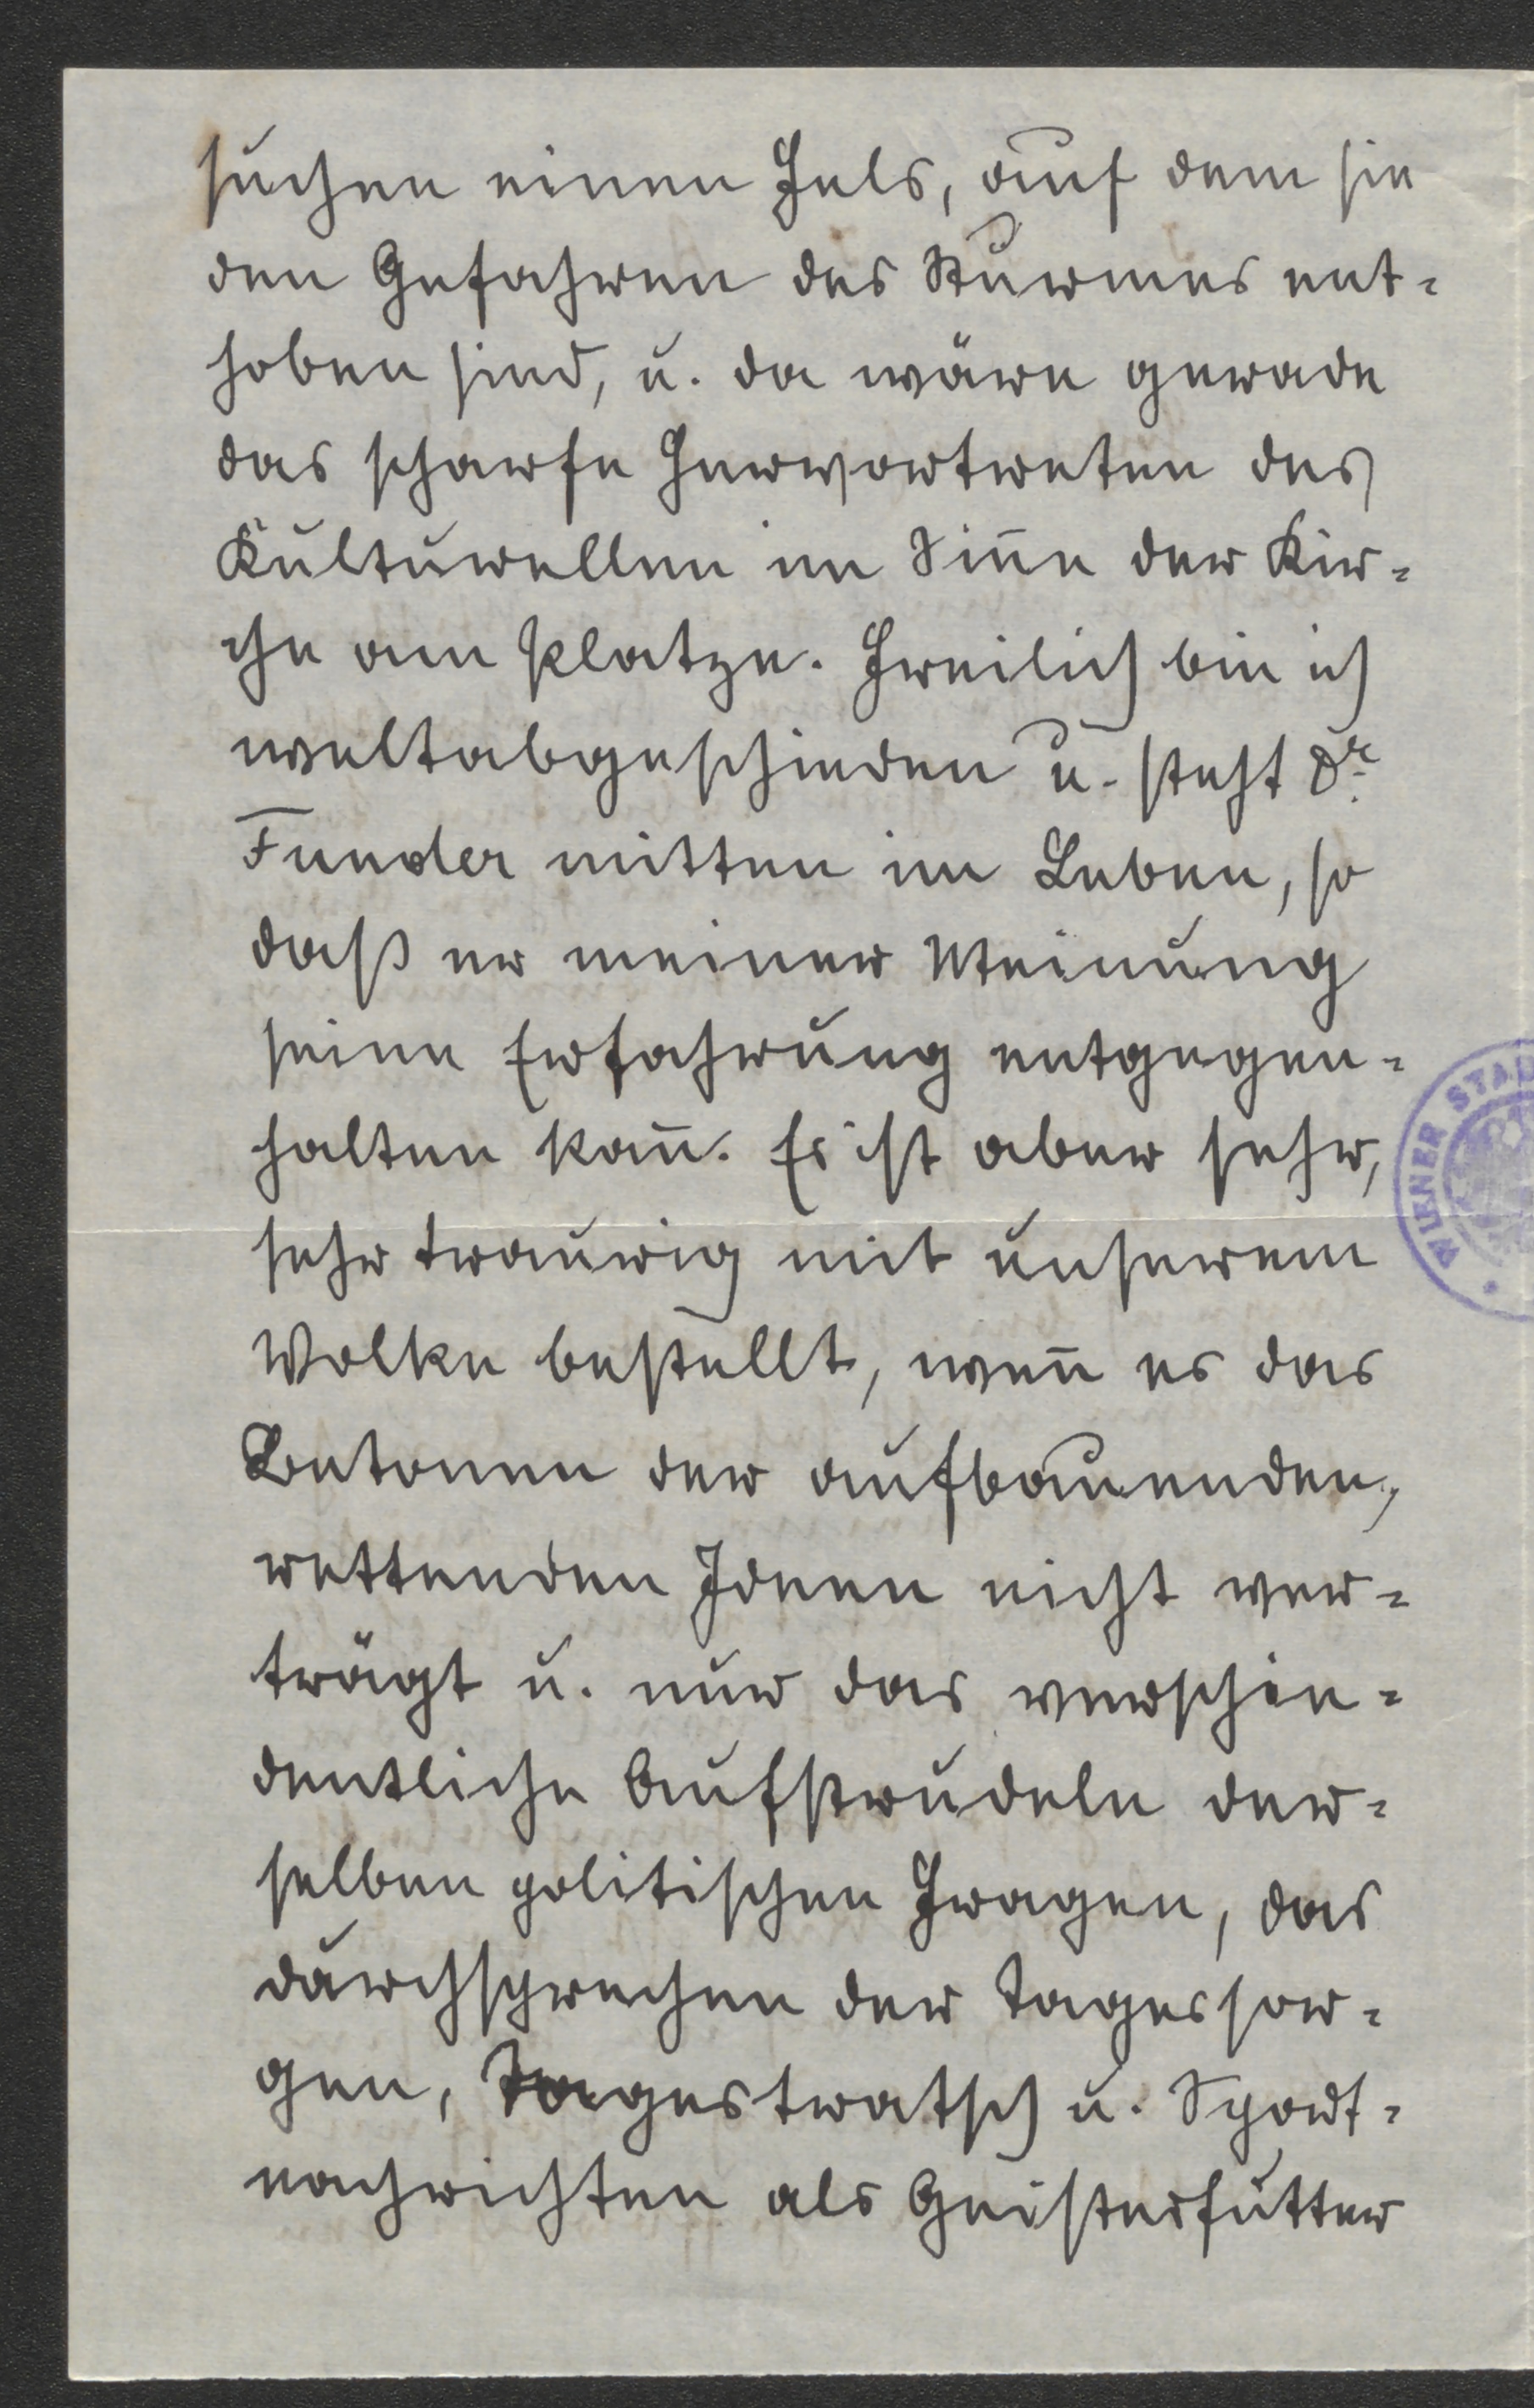 suchen einen Fels, auf dem sie
den Gefahren des Sturmes ent-
hoben sind, u. da wäre gerade
das scharfe Hervortreten des
Kulturellen im Sin̄e der Kir-
che am Platze. Freilich bin ich
weltabgeschieden u. steht Dr.
Funder mitten im Leben, so
daß er meiner Meinung
seine Erfahrung entgegen-
halten kan̄. Es ist aber sehr,
sehr traurig mit unserem
Volke bestellt, wen̄ es das
Betonen der aufbauenden,
rettenden Ideen nicht ver-
trägt u. nur das verschie-
dentliche Aufstrudeln der-
selben politischen Fragen, das
durchsprechen der Tagessor-
gen, Tagestratsch u. Sport-
nachrichten als Geistesfutter
WIENER STAD